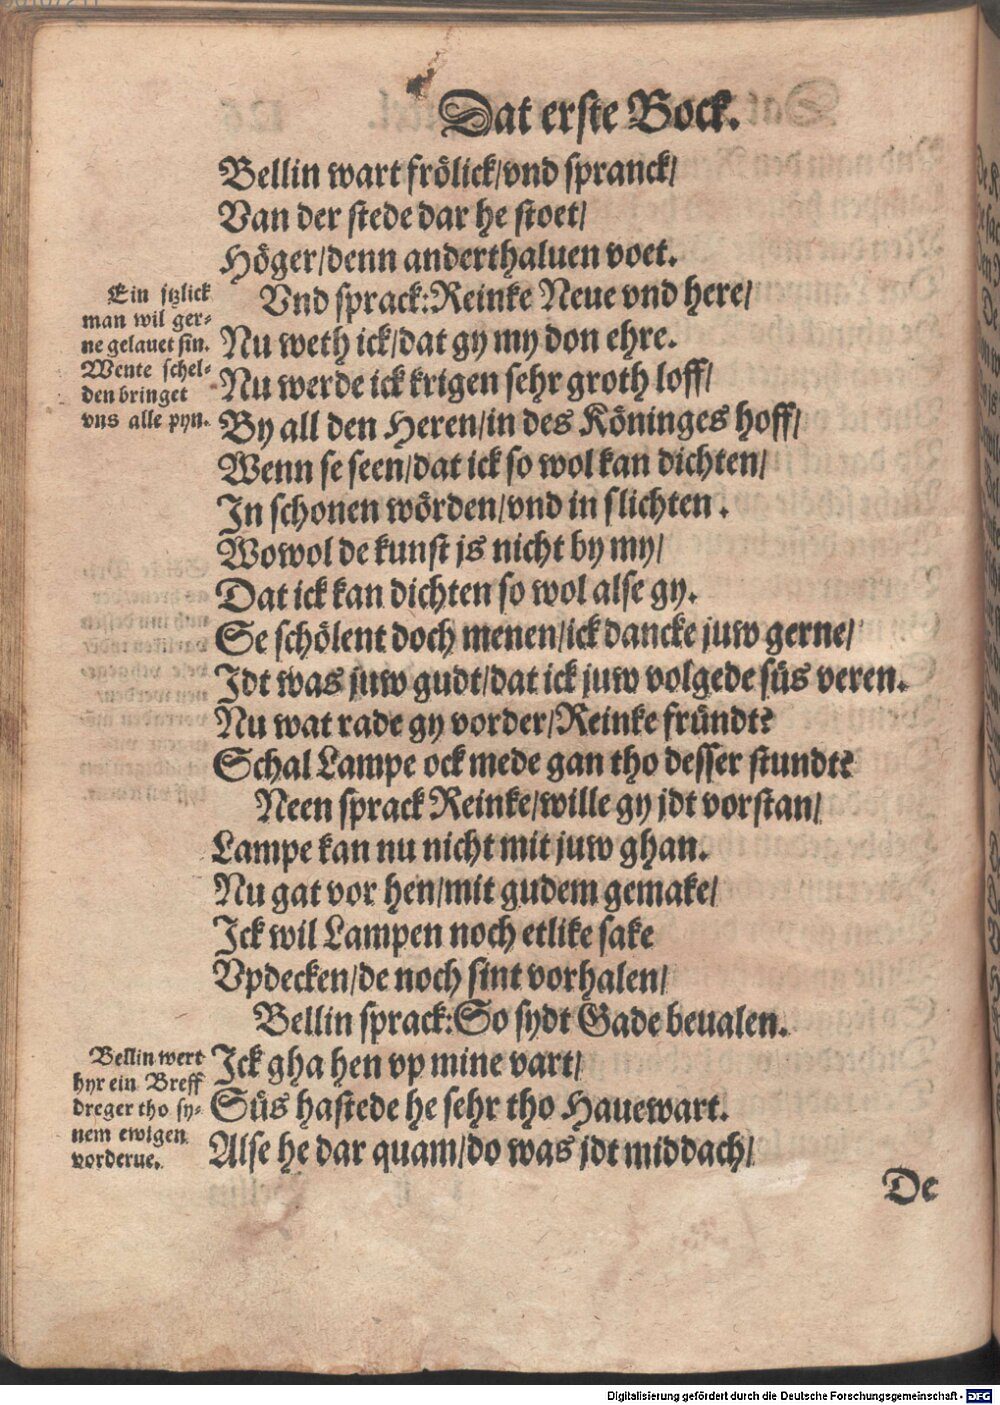 Dat erste Bock.
Bellin wart frölick/vnd spranck/
Van der stede dar he stoet/
Höger/denn anderthaluen voet.
Vnd sprack:Reinke Neue vnd here/
Nu weth ick/dat gy my don ehre.
Nu werde ick krigen sehr groth loff/
By all den Heren/in des Köninges hoff/
Wenn se seen/dat ick so wol kan dichten/
In schonen wörden/vnd in slichten.
Wowol de kunst js nicht by my/
Dat ick kan dichten so wol alse gy.
Se schölent doch menen/ick dancke juw gerne/
Idt was juw gudt/dat ick juw volgede süs veren.
Nu wat rade gy vorder/Reinke fründt?
Schal Lampe ock mede gan tho desser stundt?
Neen sprack Reinke/wille gy jdt vorstan/
Lampe kan nu nicht mit juw ghan.
Nu gat vor hen/mit gudem gemake/
Ick wil Lampen noch etlike sake
Vpdecken/de noch sint vorhalen/
Bellin sprack:So sydt Gade beualen.
Ick gha hen vp mine vart/
Süs hastede he sehr tho Hauewart.
Alse he dar quam/do was jdt middach/
De
Ein jtzlick
man wil ger-
ne gelauet sin.
Wente schel-
den bringet
vns alle pyn.
Bellin wert
hyr ein Breff
dreger tho sy-
nem ewigen
vorderue.
Digitalisierung gefördert durch die Deutsche Forschungsgemeinschaft - DFG